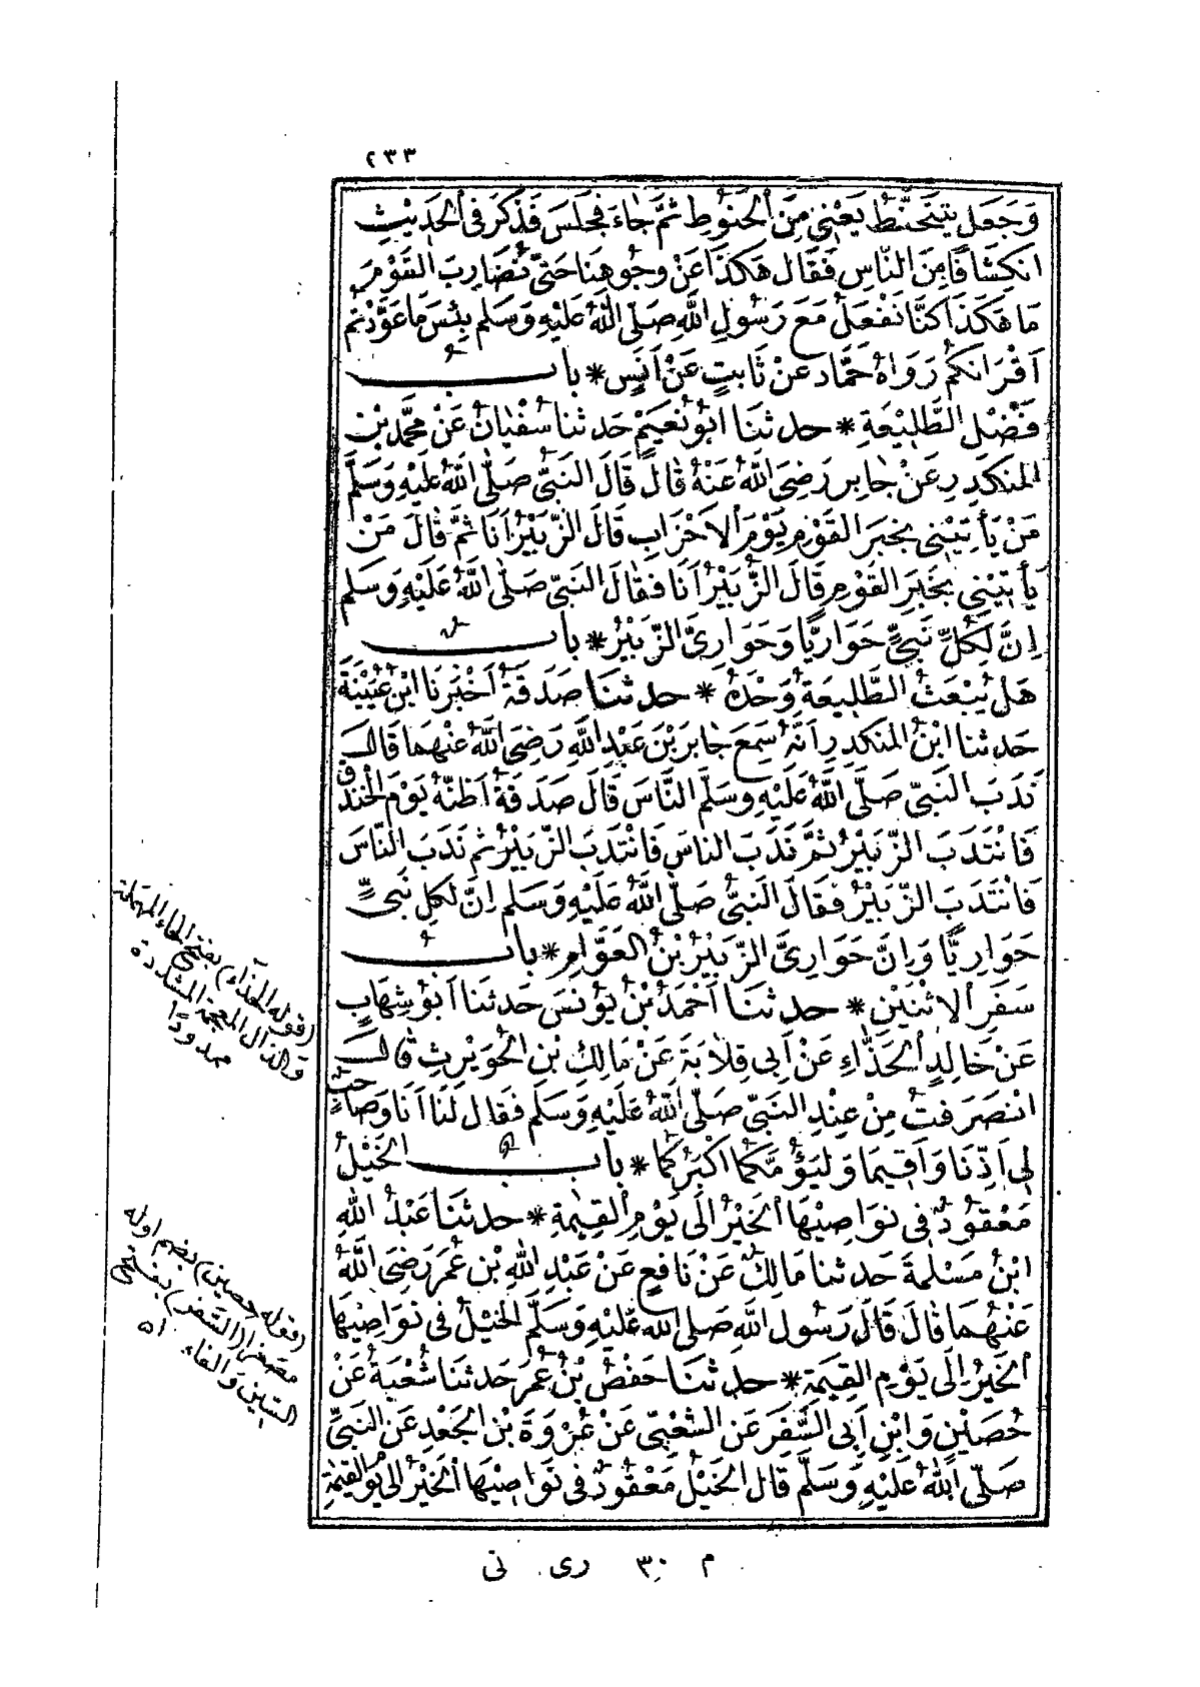 ٢٣٣
وَجَعَلَ يَتَحَنَّطُ يَعْنِى مِنَ الْحَنُوطِ ثُمَّ جَاءَ فَجَلَسَ فَذَكَرَ فِى الْحَدِيْثِ
انْكِشَافًا مِنَ النَّاسِ فَقَالَ هٰكَذَا عَنْ وُجُوهِنَا حَتَّى نُضَارِبَ الْقَوْمَ
مَا هٰكَذَا كُنَّا نَفْعَلُ مَعَ رَسُولِ اللّٰهِ صَلَّى اللّٰهُ عَلَيْهِ وَسَلَّم بِئْسَ مَا عَوَّدْتُمْ
اَقْرَانَكُمْ رَوَاهُ حَمَّاد عَنْ ثَابِتٍ عَنْ اَنَسٍ * بابُ
فَضْلِ الطَّلِيْعَةِ * حدثنَا اَبُو نُعَيْمٍ حَدثنا سُفْيَانُ عَنْ مُحَمَّد بْنِ
الْمُنْكَدِرِ عَنْ جَابِر رَضِىَ اللّٰهُ عَنْهُ قَالَ قَالَ النَّبِىُّ صَلَّى اللّٰهُ عَلَيْهِ وَسَلَّم
مَنْ يَأْتِيْنِى بِخَبَرِ الْقَوْمِ يَوْمَ الْاَحْزَابِ قَالَ الزُّبَيْرُ اَنَا ثُمَّ قَالَ مَنْ
يَأْتِيْنِى بِخَبَرِ القَوْمِ قَالَ الزُّبَيْرُ اَنَا فَقَالَ النَّبِىُّ صَلَّى اللّٰهُ عَلَيْهِ وَسَلم
اِنَّ لِكُلِّ نَبِىٍّ حَوَارِيًّا وَحَوَارِىَّ الزُّبَيْرُ * بابُ
هَلْ يُبْعَثُ الطَّلِيعَةُ وَحْدَهُ * حدثنَا صَدَقَةُ اَخْبَرَنَا ابْنُ عُيَيْنَةَ
حَدثنا ابْنُ الْمُنكَدِرِ اَنَّهُ سَمِعَ جَابِرَ بْنَ عَبْدِ اللّٰهِ رَضِىَ اللّٰهُ عَنْهُمَا قَالَ
نَدَبَ النَّبِىُّ صَلَّى اللّٰهُ عَلَيْهِ وَسَلَّم النَّاسَ قَالَ صَدَقَةُ اَظُنُّهُ يَوْمَ الْخَنْدَقِ
فَانْتَدَبَ الزُّبَيْرُ ثُمَّ نَدَبَ الناسَ فَانْتَدَبَ الزُّبَيْرُ ثم نَدَبَ النَّاسَ
فَانْتَدَبَ الزُّبَيْرُ فَقَالَ النَّبِىُّ صَلَّى اللّٰهُ عَلَيْهِ وَسَلم اِنَّ لِكُلِ نَبِىٍّ
حَوَارِيًّا وَاِنَّ حَوَارِىَّ الزُّبَيْرُ بْنُ الْعَوَّامِ * بابُ
سَفَرِ الْاِثْنَيْنِ * حدثنَا اَحْمَدُ بْنُ يُونُسَ حَدثنَا اَبُو شِهَابٍ
عَنْ خَالِدٍ الْحَذَّاءِ عَنْ اَبِى قِلَابَةَ عَنْ مَالِكِ بْنِ الْحُوَيْرِثِ قَالَ
انْصَرَفتُ مِنْ عِنْدِ النَّبِىِّ صَلَّى اللّٰهُ عَلَيْهِ وَسَلم فَقَالَ لَنَا اَنَا وَصَاحِبٍ
لِى اَذِّنَا وَاَقِيمَا وَلْيَؤُمَّكُمَا اَكْبَرُكُمَا * بابُ الْخَيْلُ
مَعْقُودٌ فِى نَوَاصِيْهَا الْخَيْرُ اِلَى يَوْمِ الْقِيٰمَةِ * حدثنَا عَبْدُ اللّٰهِ
ابْنُ مَسْلَمَةَ حَدثنا مَالِكٌ عَنْ نَافِعٍ عَنْ عَبْدِ اللّٰهِ بْنِ عُمَرَ رَضِىَ اللّٰهُ
عَنْهُمَا قَالَ قَالَ رَسُول اللّٰهِ صَلى اللّٰه عَلَيْهِ وَسَلَّم الْخَيْلُ فِى نَوَاصِيْهَا
الْخَيْرُ اِلَى يَوْمِ الْقِيٰمَةِ * حدثنَا حَفْصُ بْنُ عُمَرَ حَدثنَا شُعْبَةُ عَنْ
حُصَيْنٍ وَابْنِ اَبِى السَّفَرِ عَنِ الشَّعْبِىِّ عَنْ عُرْوَةَ بْنِ الْجَعْدِ عَنِ النَّبِىِّ
صَلَّى اللّٰهُ عَلَيْهِ وَسَلَّم قَالَ الْخَيْلُ مَعْقُودٌ فِى نَوَاصِيْهَا الْخَيْرُ اِلى يَوْمِ الْقِيٰمَةِ
(قوله الحذّاء) بفتح الحاء المهملة
والذال المعجمة المشددة
ممدودًا
(قوله حصين) بضم اوله
مصغرا (السَّفر) بفتح
السّين والفاء اه
م ٣٠ رى نى